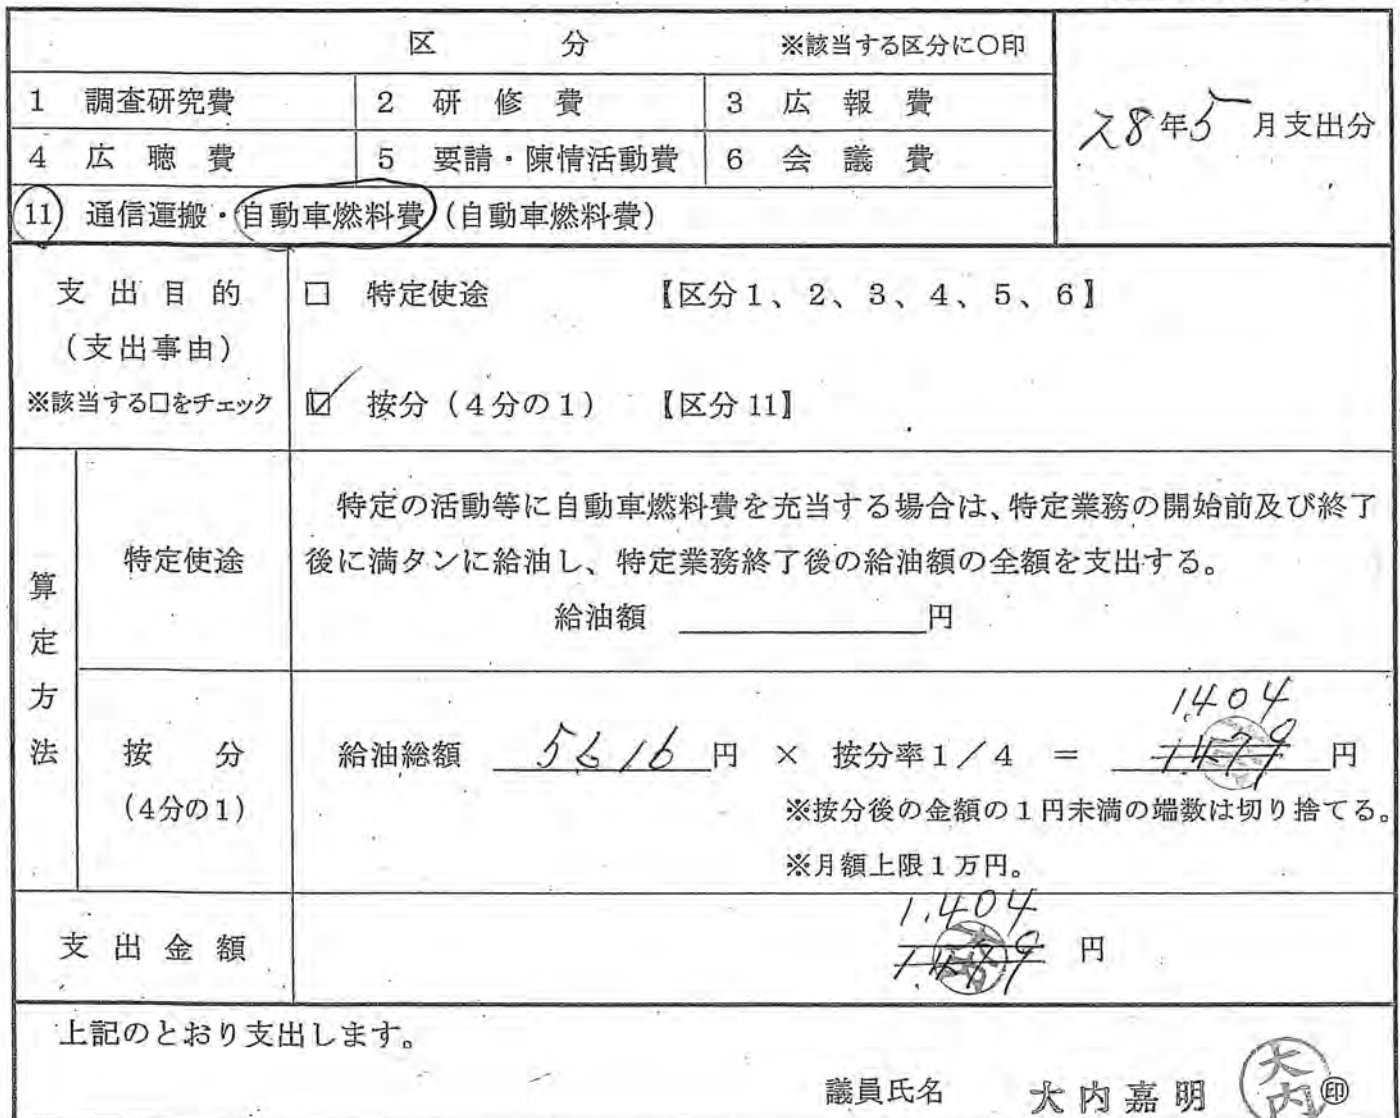 区 分 ※該当する区分に○印
1 調査研究費 2 研修費 3 広報費
28年5月支出分
4 広聴費 5 要請・陳情活動費 6 会議費
11 通信運搬・自動車燃料費(自動車燃料費)
支出目的
(支出事由)
※該当する□をチェック
□ 特定使途 【区分1、2、3、4、5、6】
☑ 按分(4分の1) 【区分11】
算定方法
特定使途
特定の活動等に自動車燃料費を充当する場合は、特定業務の開始前及び終了
後に満タンに給油し、特定業務終了後の給油額の全額を支出する。
給油額 円
按分
(4分の1)
1.404
給油総額 5616 円 × 按分率1/4 = 1479 円
※按分後の金額の1円未満の端数は切り捨てる。
※月額上限1万円。
支出金額
1.404
1.479 円
上記のとおり支出します。
議員氏名 大内嘉明 ㊞
大内